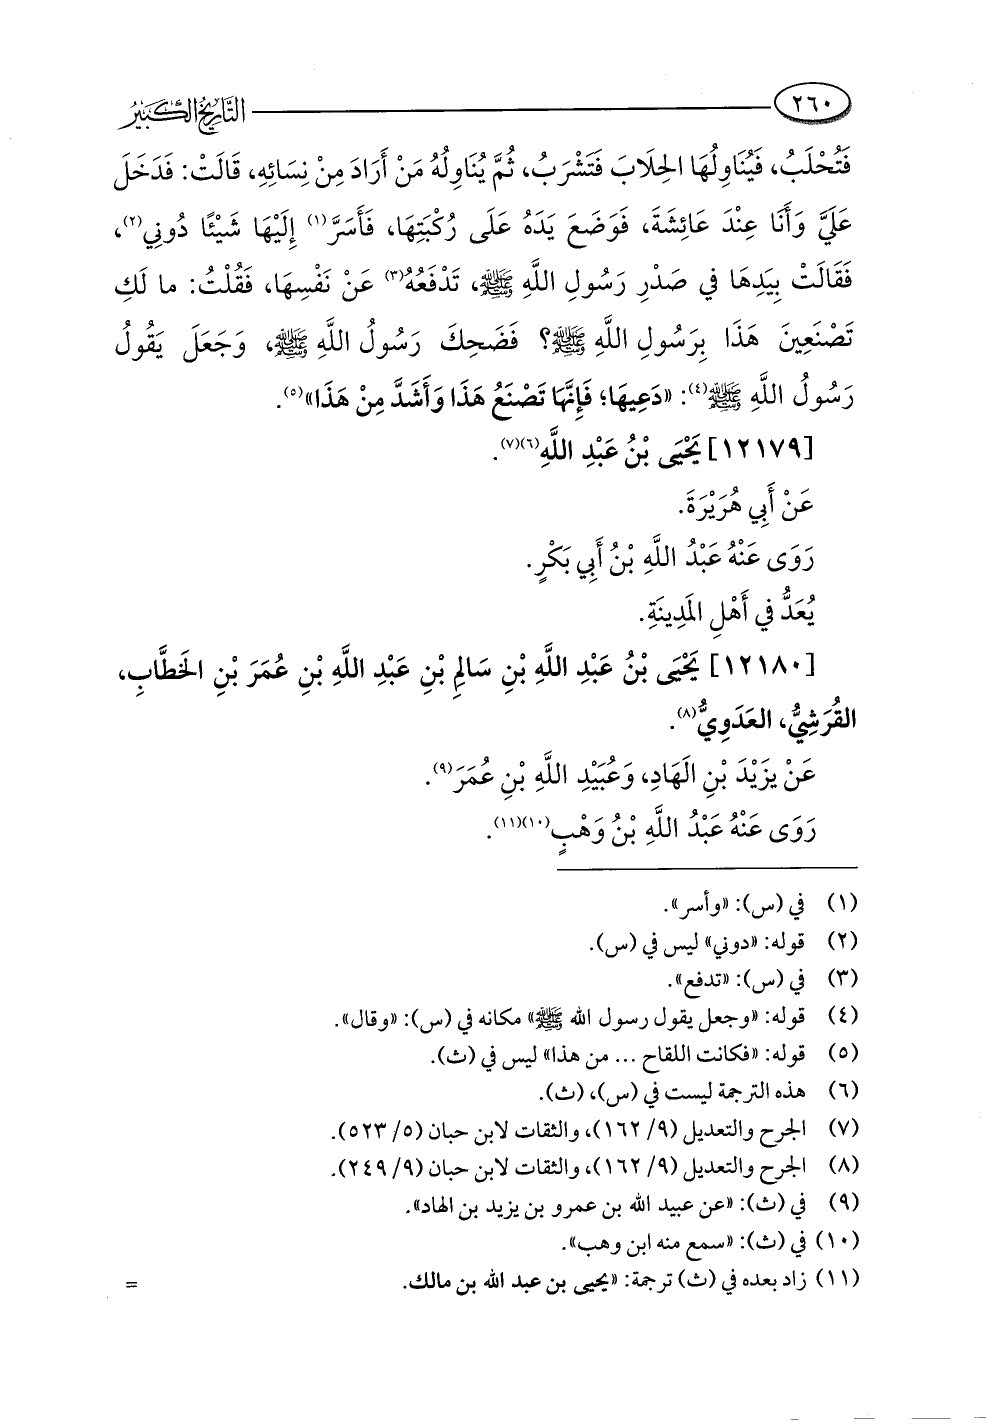 ٢٦٠ التَّارِيخُ الكَبِيرُ
فَتُحْلَبُ، فَيُنَاوِلُهَا الحِلَابَ فَتَشْرَبُ، ثُمَّ يُنَاوِلُهُ مَنْ أَرَادَ مِنْ نِسَائِهِ، قَالَتْ: فَدَخَلَ
عَلَيَّ وَأَنَا عِنْدَ عَائِشَةَ، فَوَضَعَ يَدَهُ عَلَى رُكْبَتِهَا، فَأَسَرَّ(١) إِلَيْهَا شَيْئًا دُونِي(٢)،
فَقَالَتْ بِيَدِهَا فِي صَدْرِ رَسُولِ اللَّهِ ﷺ، تَدْفَعُهُ(٣) عَنْ نَفْسِهَا، فَقُلْتُ: ما لَكِ
تَصْنَعِينَ هَذَا بِرَسُولِ اللَّهِ ﷺ؟ فَضَحِكَ رَسُولُ اللَّهِ ﷺ، وَجَعَلَ يَقُولُ
رَسُولُ اللَّهِ ﷺ(٤): «دَعِيهَا؛ فَإِنَّهَا تَصْنَعُ هَذَا وَأَشَدَّ مِنْ هَذَا»(٥).
[١٢١٧٩] يَحْيَى بْنُ عَبْدِ اللَّهِ(٦)(٧).
عَنْ أَبِي هُرَيْرَةَ.
رَوَى عَنْهُ عَبْدُ اللَّهِ بْنُ أَبِي بَكْرٍ.
يُعَدُّ فِي أَهْلِ المَدِينَةِ.
[١٢١٨٠] يَحْيَى بْنُ عَبْدِ اللَّهِ بْنِ سَالِمِ بْنِ عَبْدِ اللَّهِ بْنِ عُمَرَ بْنِ الخَطَّابِ،
القُرَشِيُّ، العَدَوِيُّ(٨).
عَنْ يَزِيْدَ بْنِ الهَادِ، وَعُبَيْدِ اللَّهِ بْنِ عُمَرَ(٩).
رَوَى عَنْهُ عَبْدُ اللَّهِ بْنُ وَهْبٍ(١٠)(١١).
(١) في (س): «وأسر».
(٢) قوله: «دوني» ليس في (س).
(٣) في (س): «تدفع».
(٤) قوله: «وجعل يقول رسول الله ﷺ» مكانه في (س): «وقال».
(٥) قوله: «فكانت اللقاح ... من هذا» ليس في (ث).
(٦) هذه الترجمة ليست في (س)، (ث).
(٧) الجرح والتعديل (٩/ ١٦٢)، والثقات لابن حبان (٥/ ٥٢٣).
(٨) الجرح والتعديل (٩/ ١٦٢)، والثقات لابن حبان (٩/ ٢٤٩).
(٩) في (ث): «عن عبيد الله بن عمرو بن يزيد بن الهاد».
(١٠) في (ث): «سمع منه ابن وهب».
(١١) زاد بعده في (ث) ترجمة: «يحيى بن عبد الله بن مالك. =